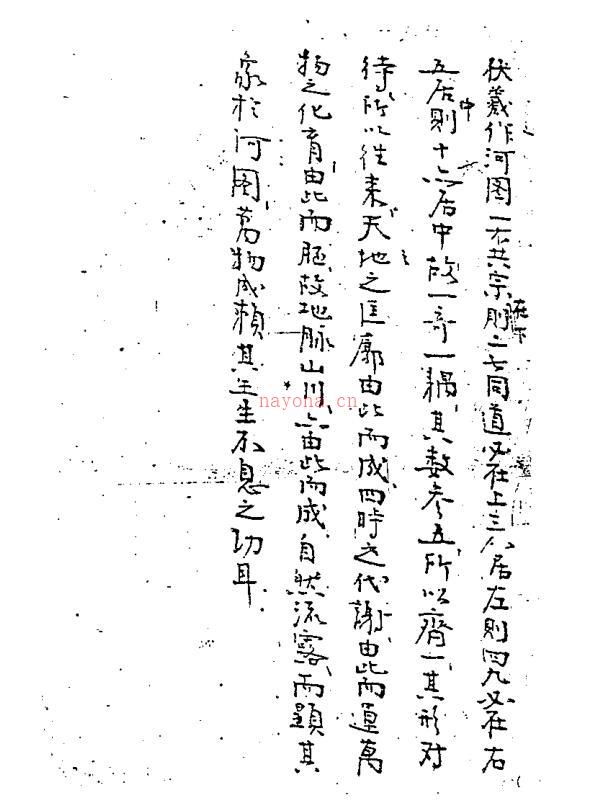 伏羲作河图一六共宗在下則二七同道必在上三八居左則四九必在右
五居中則十亦居中故一奇一耦其数参五所以齊一其形对
待所以往来天地之匡廓由此而成四時之代謝由此而運萬
物之化育由此而胚故地脉山川亦由此而成自然流露而顕其
象於河图萬物成賴其生生不息之功耳
nayona.cn